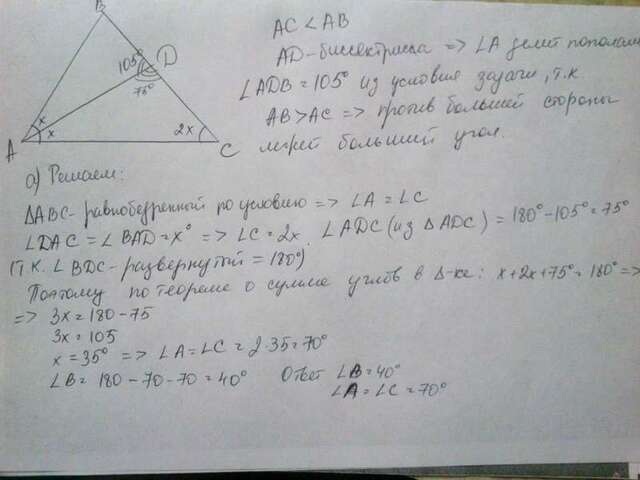 B
AC < AB
AD-биссектриса => ∠A делит пополам
105° D
∠ADB = 105° из условия задачи, т.к
75°
AB > AC => против большей стороны
x
x
2x
A
C
лежит больший угол.
а) Решаем:
ΔABC- равнобедренный по условию => ∠A = ∠C
∠DAC = ∠BAD = x° => ∠C = 2x. ∠ADC (из ΔADC) = 180° - 105° = 75°
(т.к. ∠BDC - развернутый = 180°)
Поэтому по теореме о сумме углов в Δ-ке: x + 2x + 75° = 180° =>
=> 3x = 180 - 75
3x = 105
x = 35° => ∠A = ∠C = 2·35 = 70°
∠B = 180 - 70 - 70 = 40° Ответ ∠B = 40°
∠A = ∠C = 70°